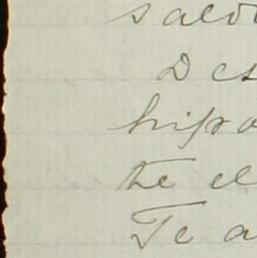 salu
Des
hipo
te el
Te a